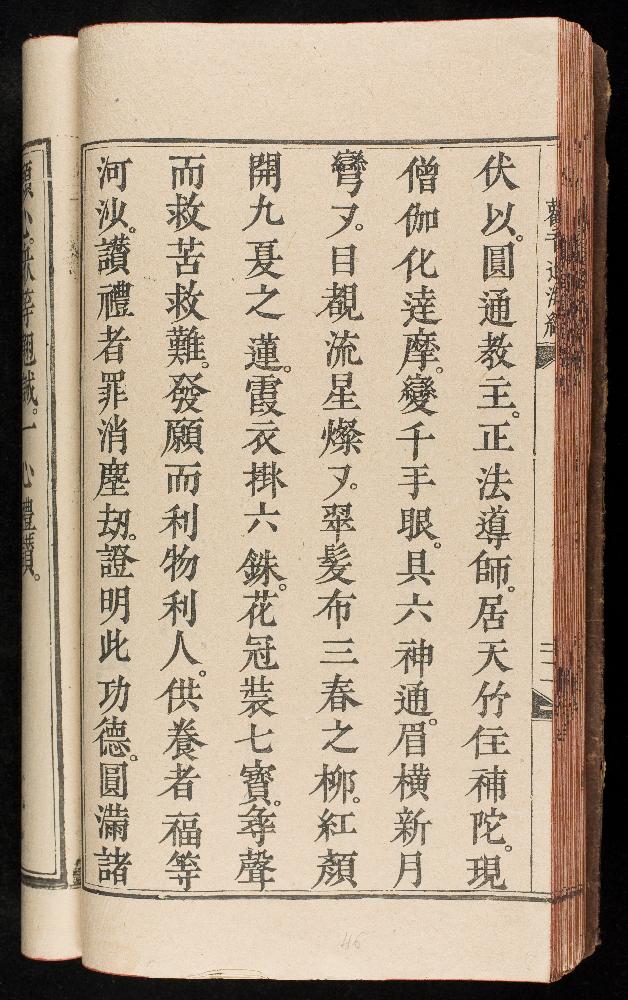 伏以。圓通教主。正法導師。居天竹住補陀。現
僧伽化達摩。變千手眼。具六神通。眉橫新月
彎又。目覩流星燦又。翠髮布三春之柳。紅顏
開九夏之蓮。霞衣掛六銖。花冠裝七寶。尋聲
而救苦救難。發願而利物利人。供養者福等
河沙。讚禮者罪消塵劫。證明此功德。圓滿諸
等翹誠。一心禮讚。
46